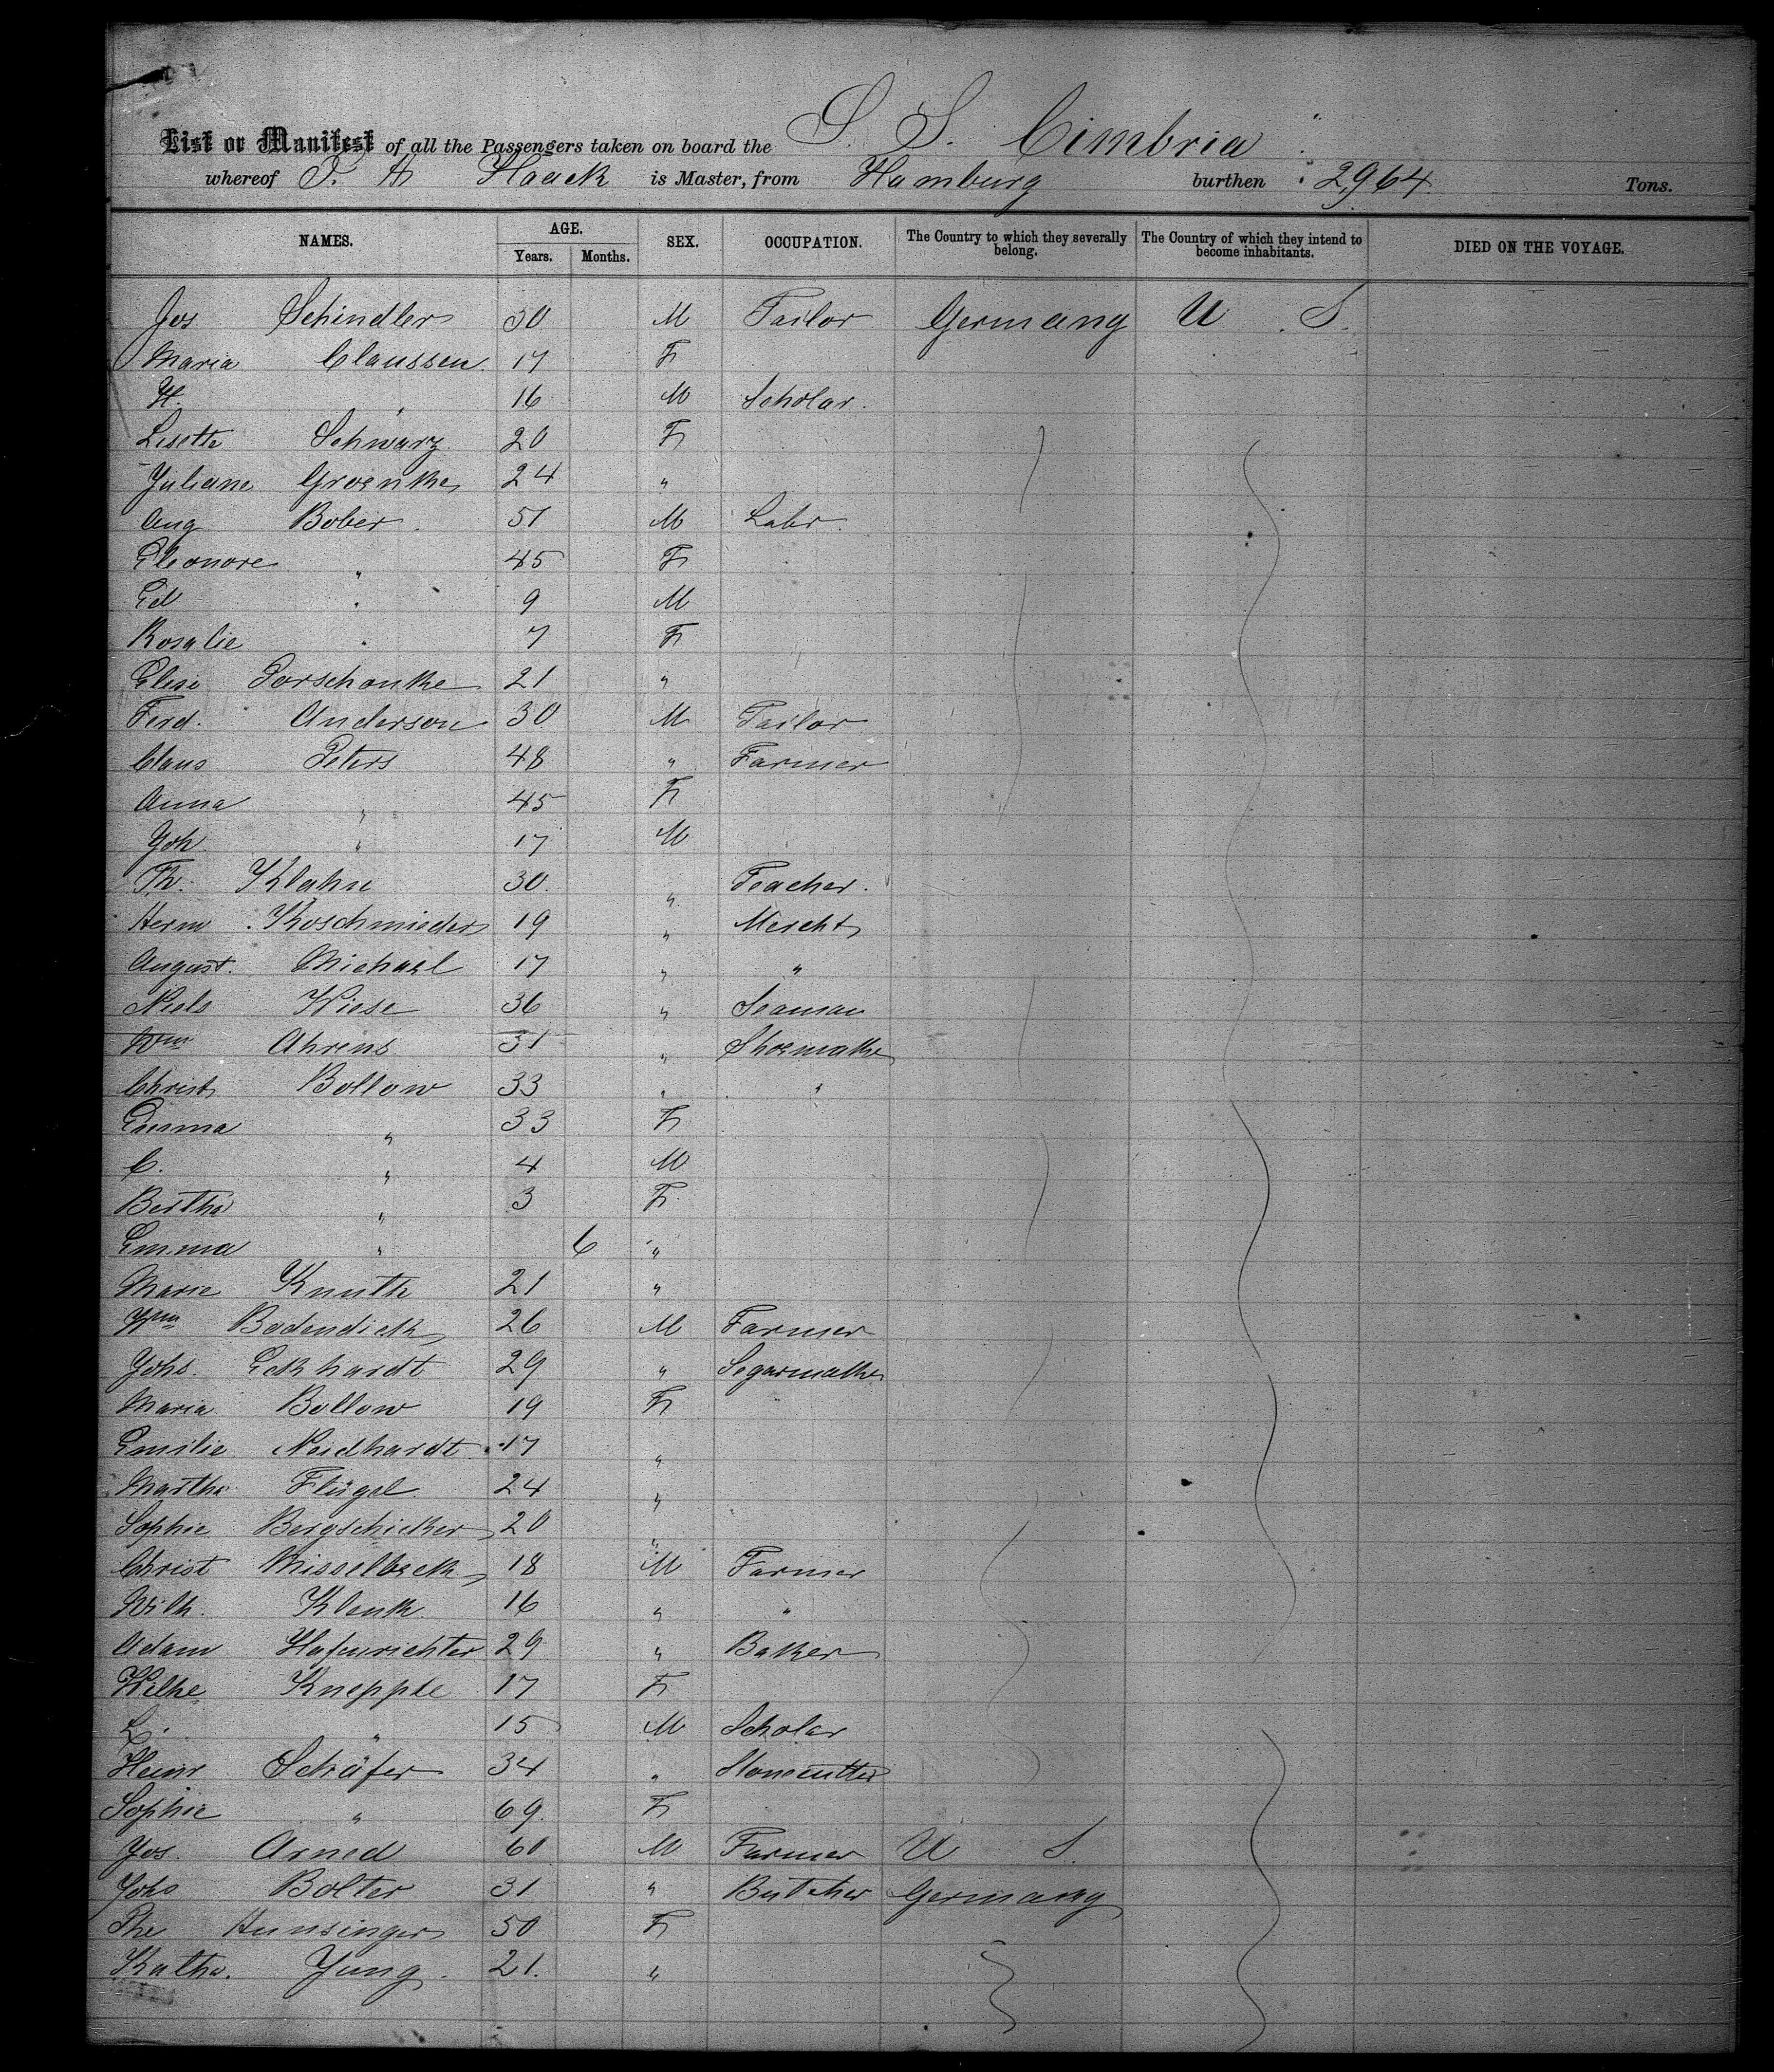 List or Manifest of all the Passengers taken on board the S. S. Cimbria
whereof P. H Haack is Master, from Hamburg burthen 2,964 Tons.
NAMES. AGE. Years. Months. SEX. OCCUPATION. The Country to which they severally belong. The Country of which they intend to become inhabitants. DIED ON THE VOYAGE.
Jos Schindler 30 M Tailor Germany U. S.
Maria Claussen 17 F
H. " 16 M Scholar.
Lisette Schwarz 20 F
Juliane Groenke 24 "
Aug Bober 51 M Labr.
Eleonore " 45 F
Ed " 9 M
Rosalie " 7 F
Elise Porschonke 21 "
Ferd. Anderson 30 M Tailor
Claus Peters 48 " Farmer
Anna " 45 F
Joh " 17 M
Th. Klahn 30. " Teacher.
Herm Koschmieder 19 " Mercht
August. Michael 17 " "
Niels Wiese 36 " Seaman
Wm Ahrens 31 " Shoemaker
Christ Bollow 33 " "
Emma " 33 F
C. " 4 M
Bertha " 3 F
Emma " 6 "
Marie Knuth 21 "
Wm Badendick 26 M Farmer
Johs. Eckhardt 29 " Segarmaker
Maria Bollow 19 F
Emilie Neidhardt 17 "
Martha Flügel 24 "
Sophie Bergschicker 20 "
Christ Misselbeck 18 M Farmer
Wilh. Klenk 16 " "
Adam Hafenrichter 29 " Baker
Wilhe Knepple 17 F
L. " 15 M Scholar
Heinr Schäfer 34 " Stonecutter
Sophie " 69. F
Jos. Arned 60 M Farmer U S.
Johs Bolter 31 " Butcher Germany
The Hunsinger 50 F
Katha. Jung 21. "